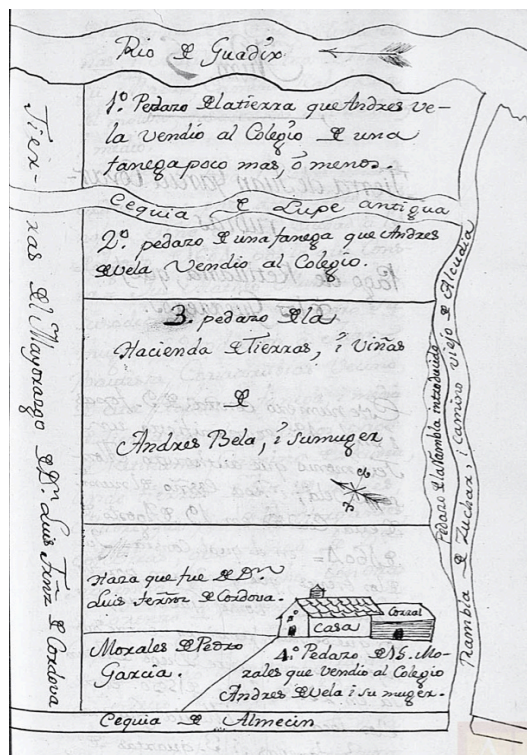 Rio de Guadix
1º. Pedazo de la tierra que Andres ve-
la vendio al Colegio de una
fanega poco mas, ó menos.
Cequia de Lupe antigua
2º. pedazo de una fanega que Andres
de vela Vendio al Colegio.
3. pedazo de la
Hacienda de Tierras, i Viñas
de
Andres Bela, i su muger
Haza que fue de Dn.
Luis ferñz de Cordova.
Casa
Corral
Morales de Pedro
Garcia.
4º. Pedazo de 15. Mo-
rales que vendio al Colegio
Andres de Vela i su muger.
Cequia de Almecin
Tier-
ras del Mayorazgo de Dn. Luis Ferñz de Cordova
Pedazo de la Rambla introducido
Rambla de Zuchar, i camino viejo de Alcudia